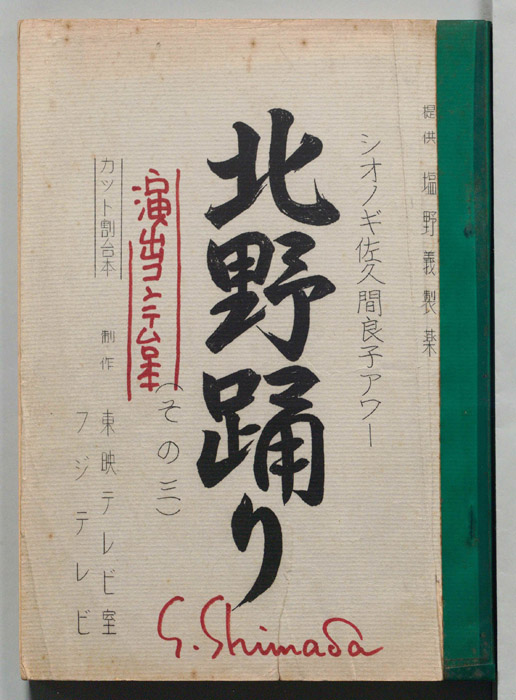 提供 塩野義製薬
シオノギ佐久間良子アワー
北野踊り
(その三)
演出コンテ台本
カット割台本
制作 東映テレビ室
フジテレビ
S. Shimada